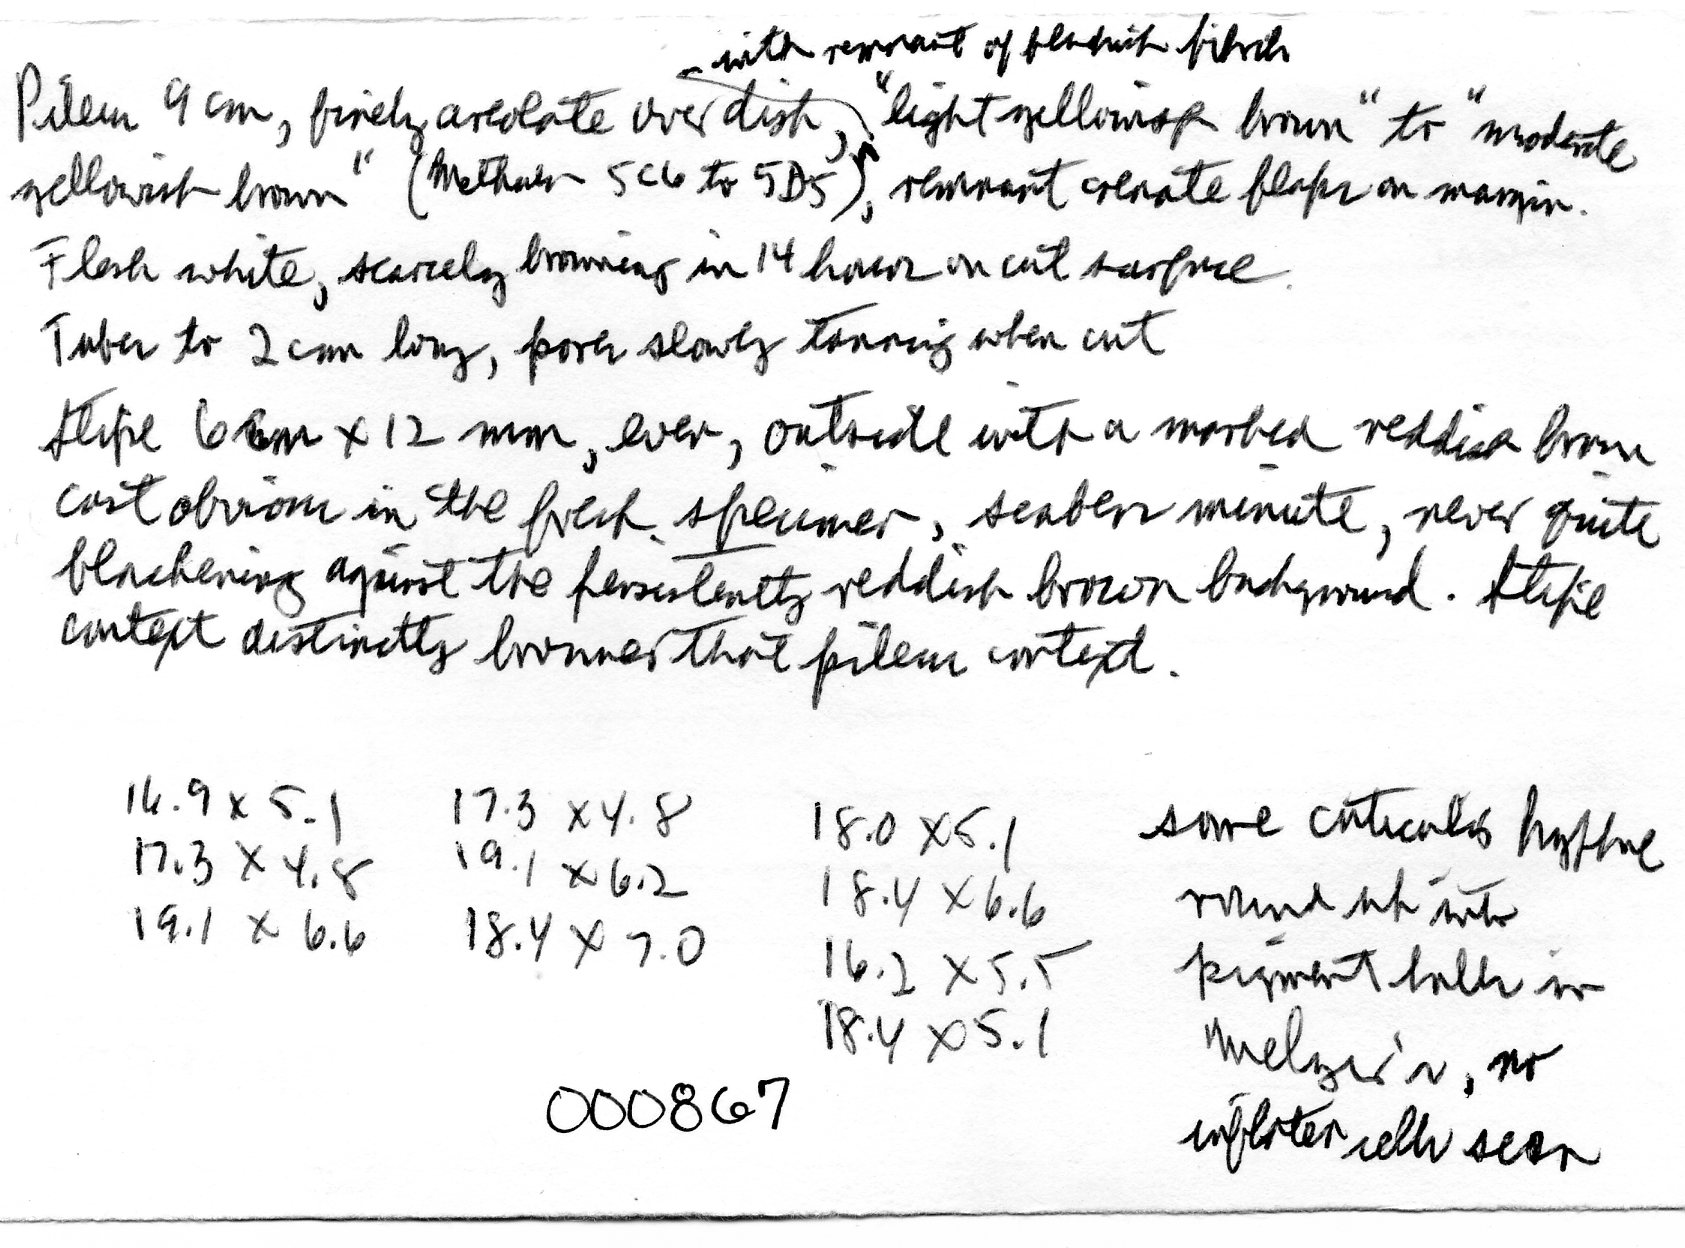 with remnant of blackish fibrils
Pileus 9 cm, finely areolate over disk, "light yellowish brown" to "moderate
yellowish brown" (Methuen 5C6 to 5D5), remnant crenate flaps on margin.
Flesh white, scarcely browning in 14 hours on cut surface.
Tubes to 2 cm long, pores slowly tanning when cut
Stipe 6 cm x 12 mm, even, outside with a marked reddish brown
cast obvious in the fresh specimen, scabers minute, never quite
blackening against the persistently reddish brown background. Stipe
context distinctly browner that pileus context.
16.9 x 5.1
17.3 x 4.8
19.1 x 6.6
17.3 x 4.8
19.1 x 6.2
18.4 x 7.0
18.0 x 5.1
18.4 x 6.6
16.2 x 5.5
18.4 x 5.1
some cuticular hyphae
round up into
pigment balls in
Melzer's, no
inflated cells seen
000867